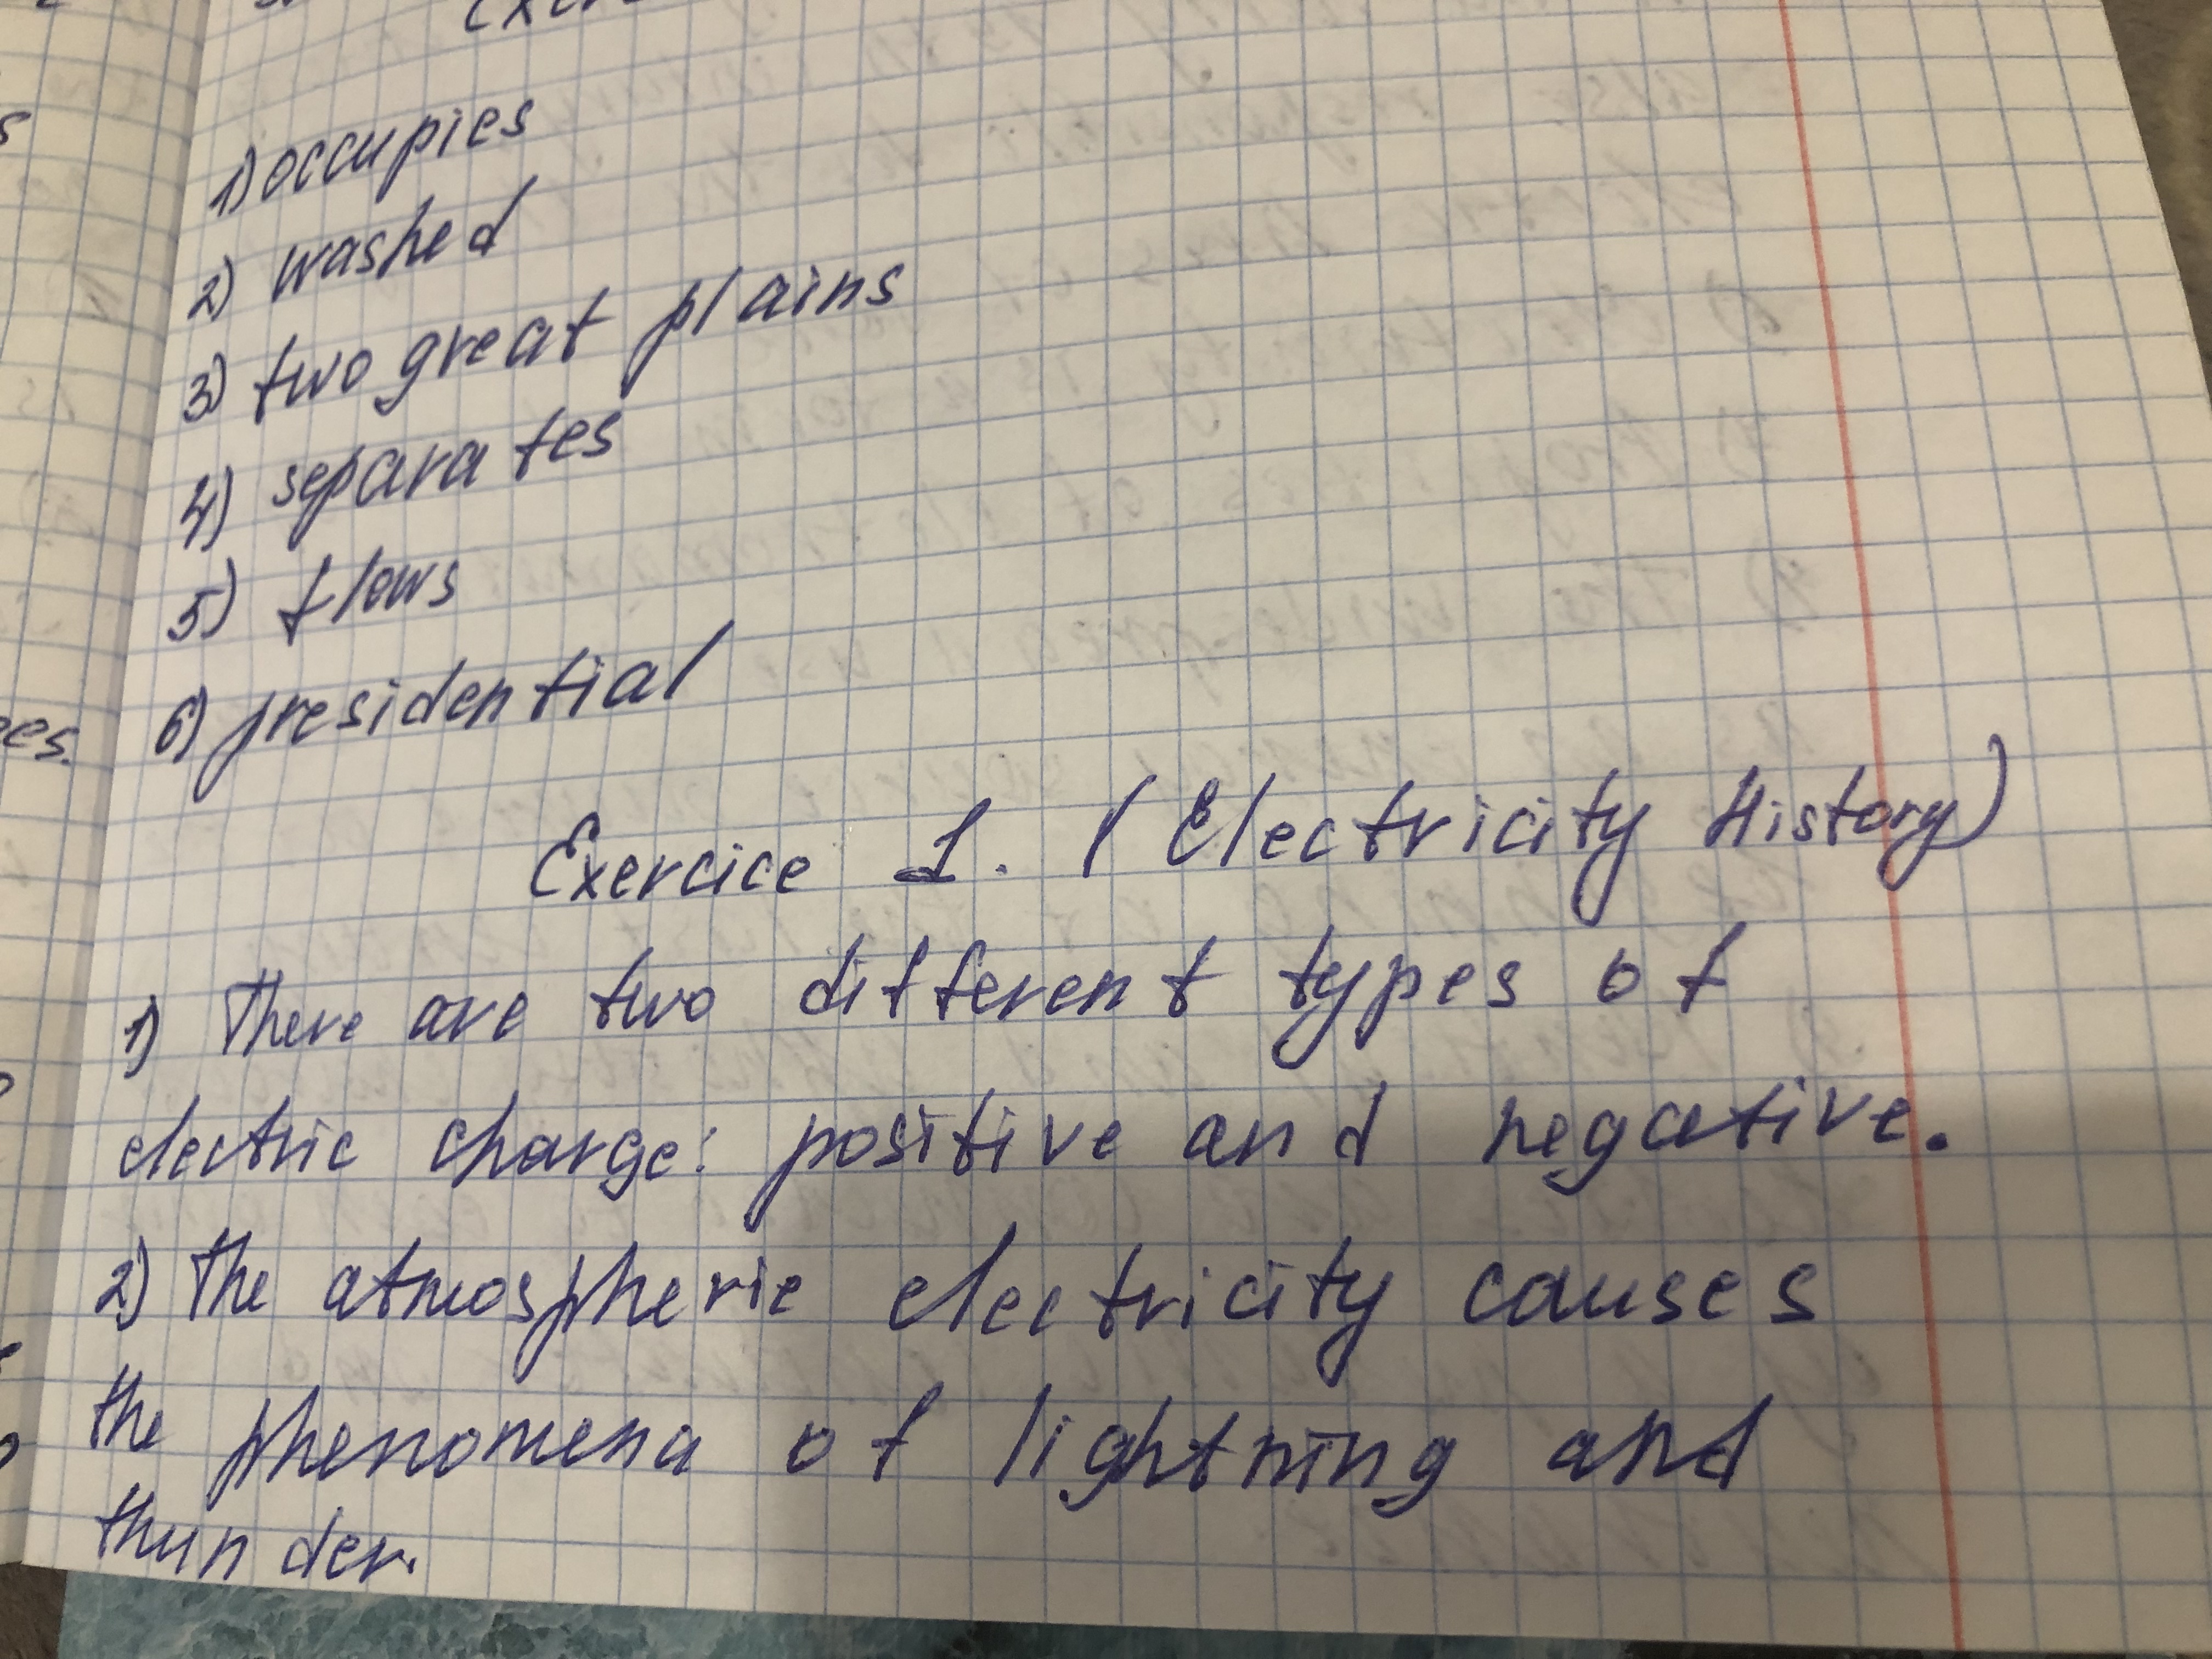 1) occupies
2) washed
3) two great plains
4) separates
5) flows
6) presidential
Exercice 1. (Electricity History)
1) There are two different types of
electric charge: positive and negative.
2) The atmospheric electricity causes
the phenomena of lightning and
thunder.